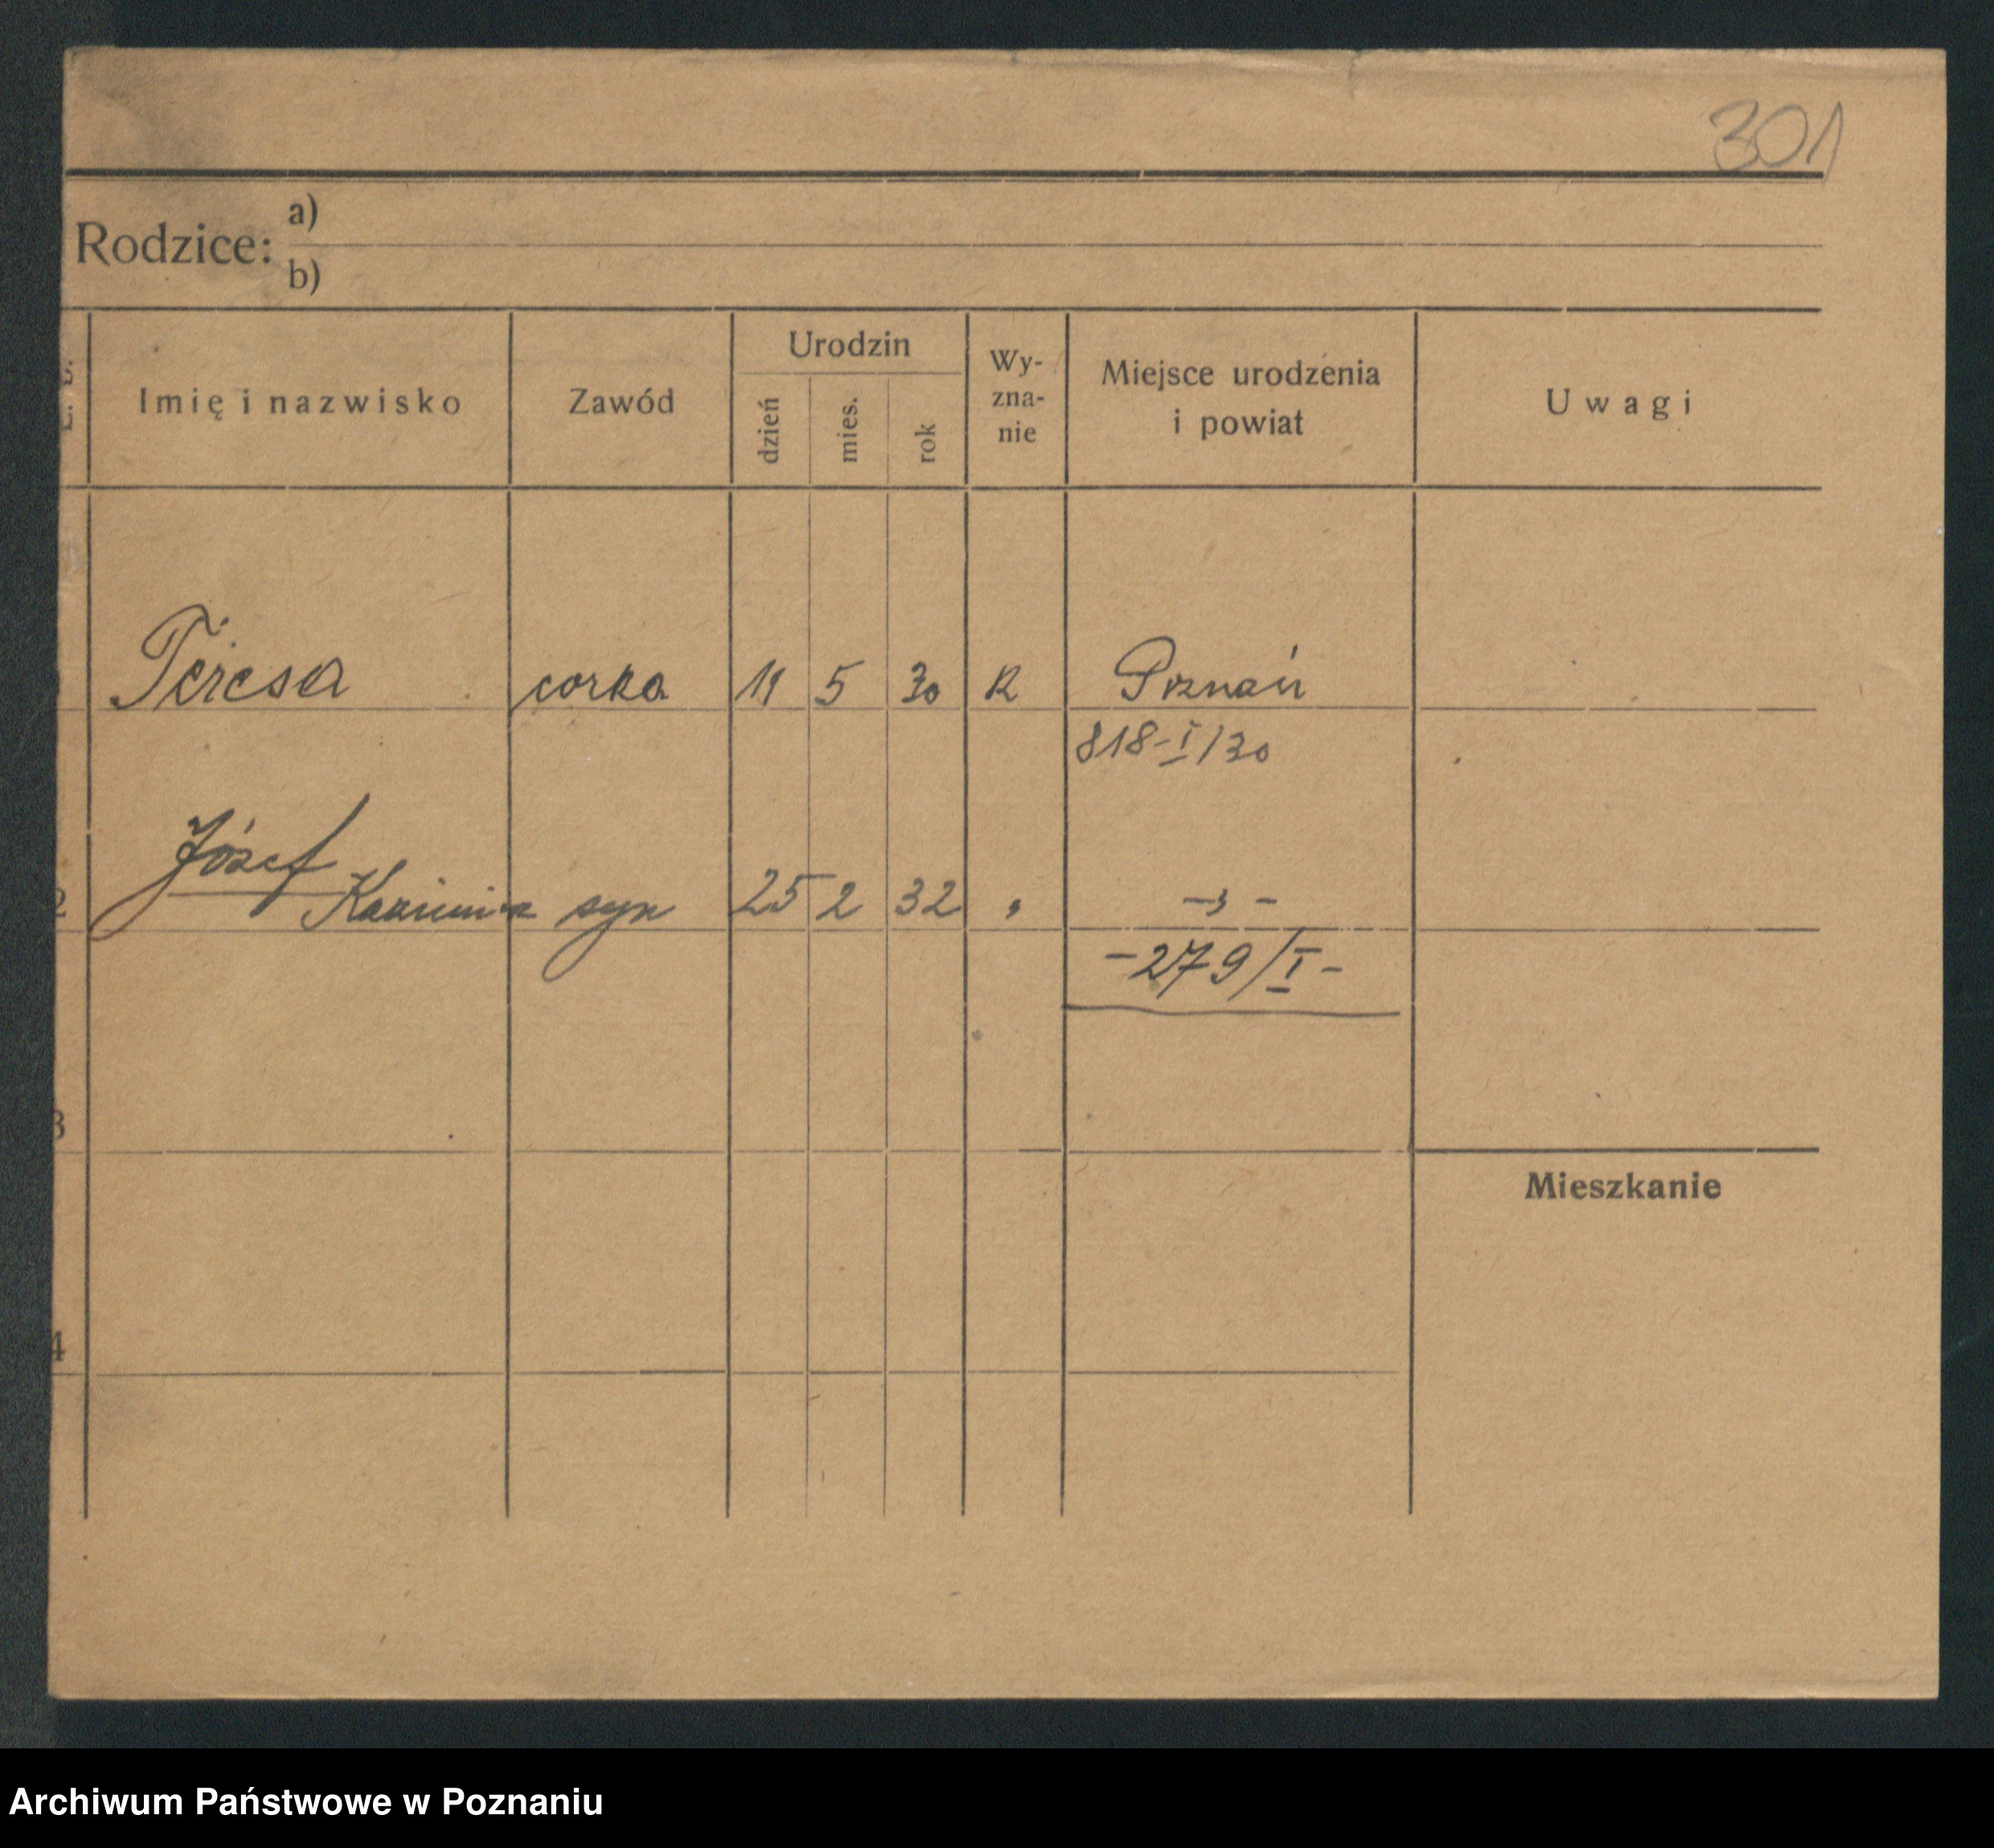 301
Rodzice: a)
b)
L. b.
Imię i nazwisko
Zawód
Urodzin
dzień
mies.
rok
Wy-
zna-
nie
Miejsce urodzenia
i powiat
Uwagi
Teresa corka 11 5 30 R Poznań
818-I/30
Józef
2 Kazimierz syn 25 2 32 " -"-
-279/I-
3
Mieszkanie
4
Archiwum Państwowe w Poznaniu